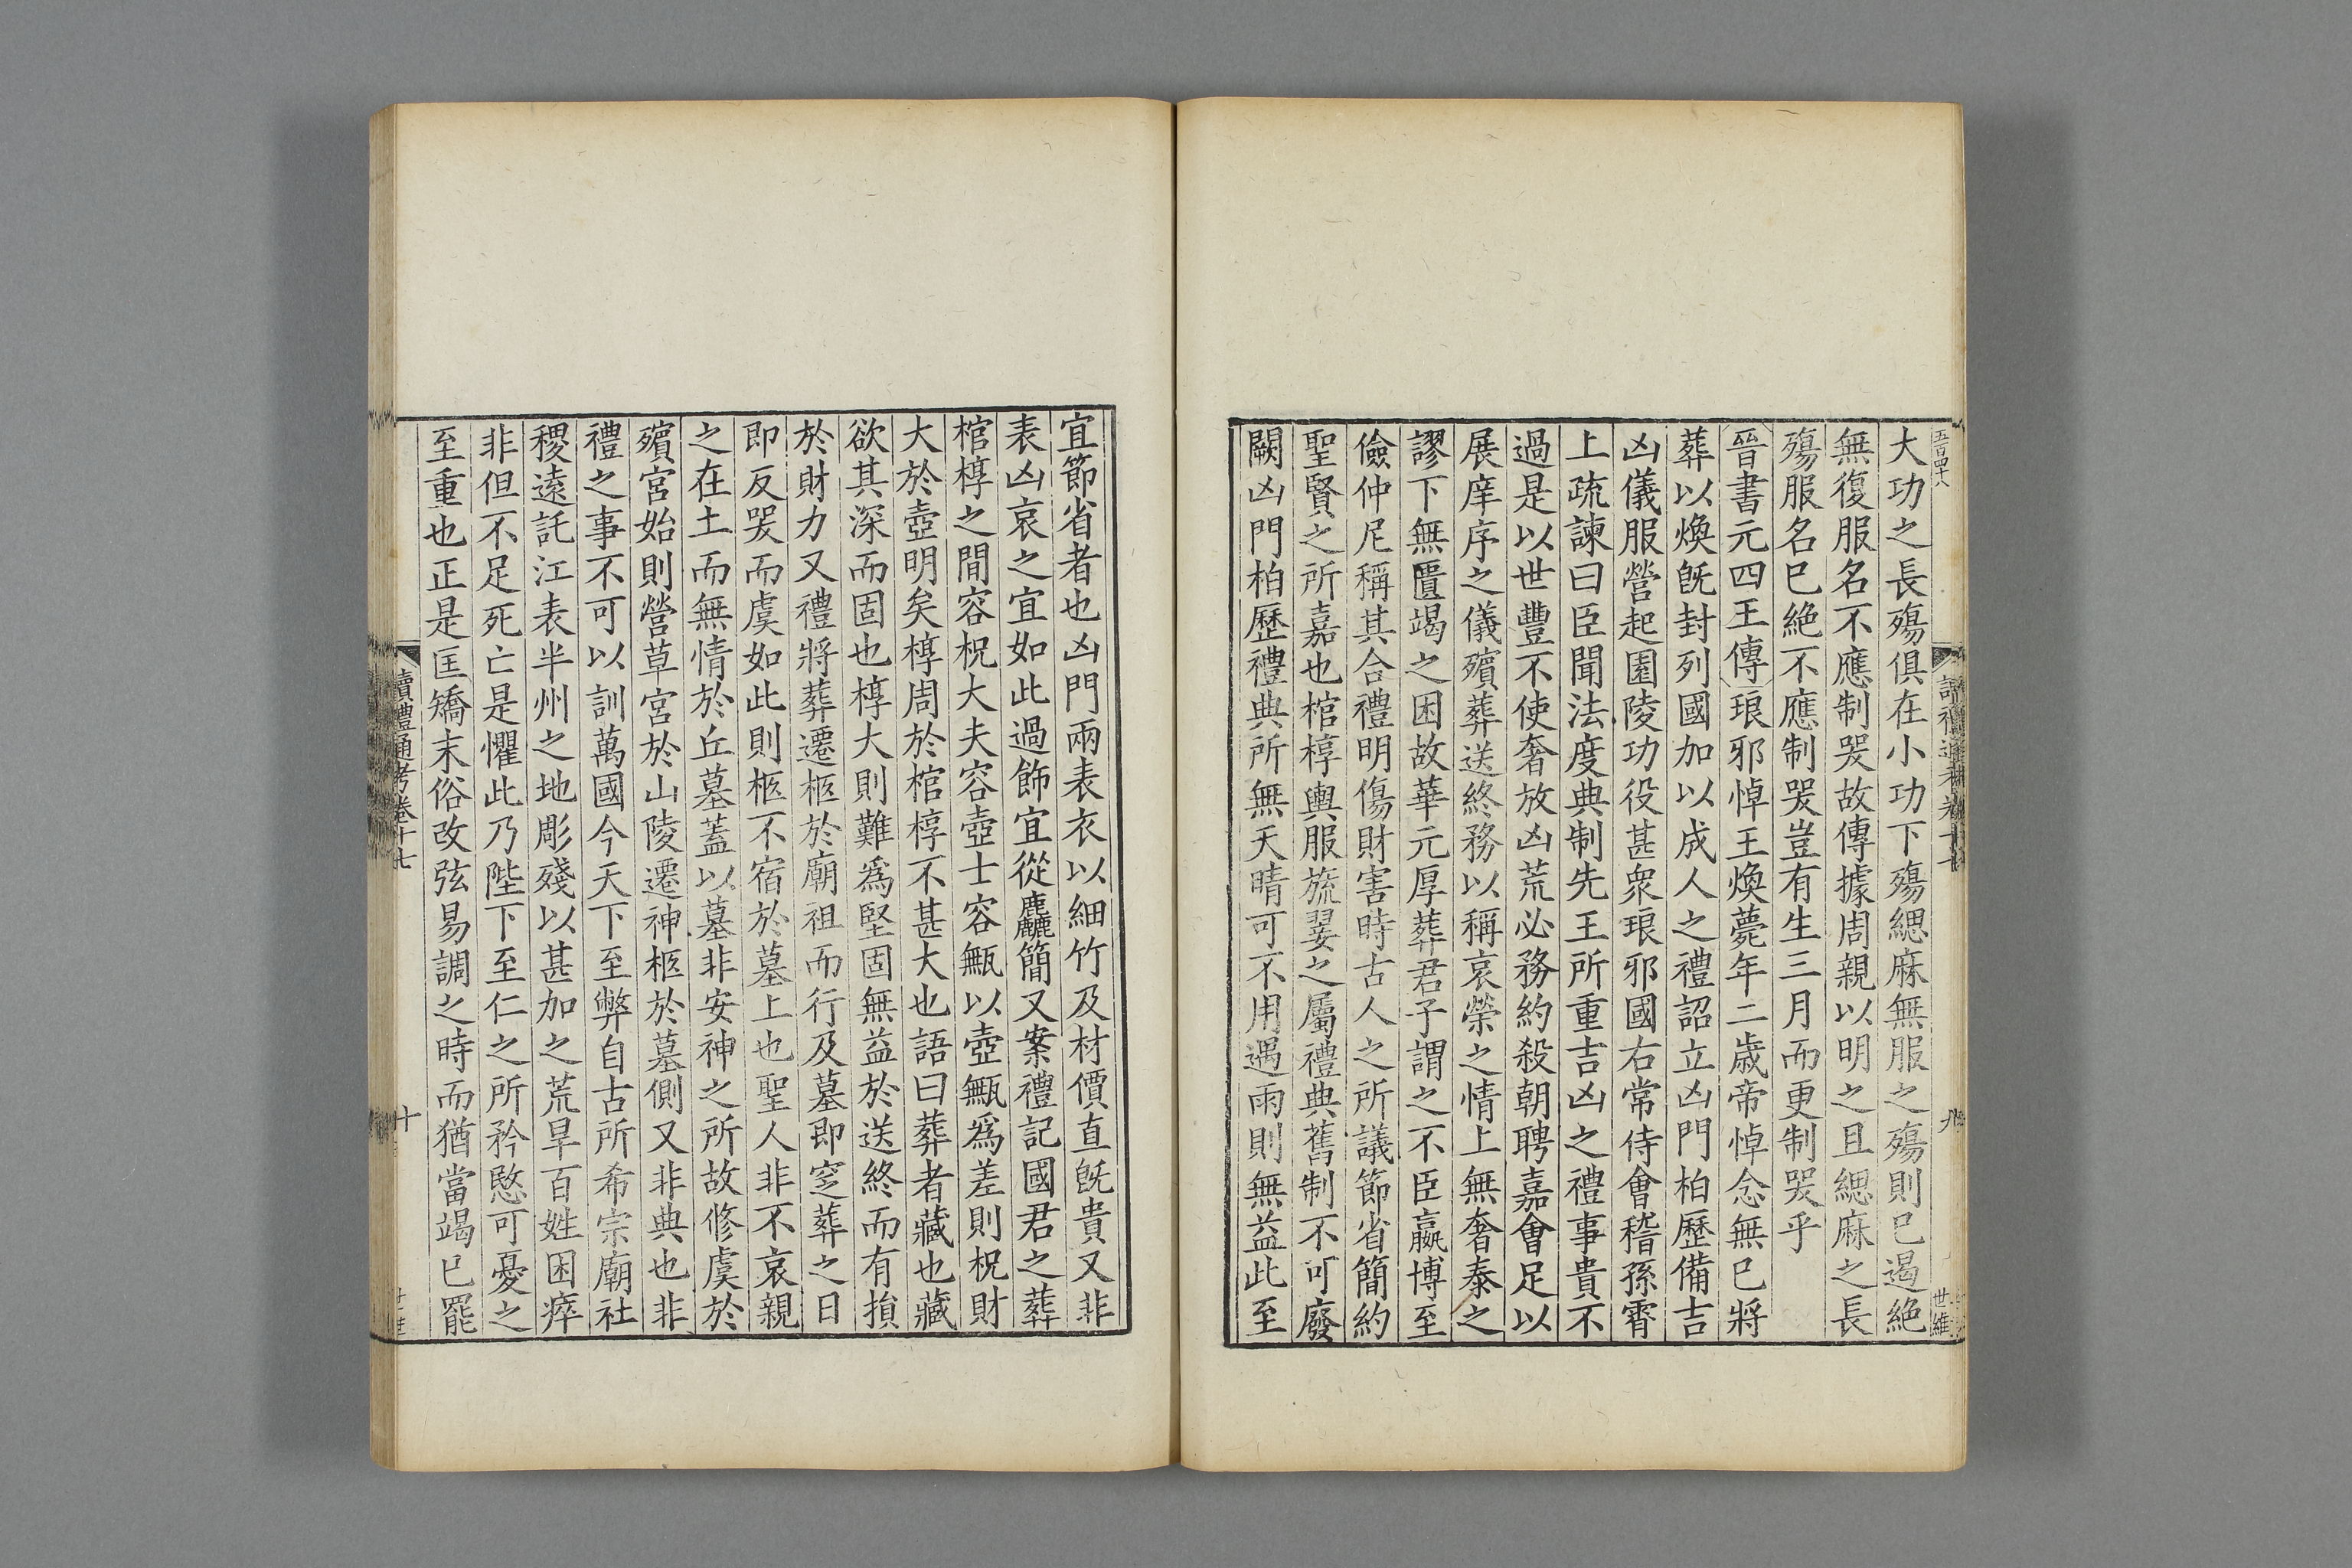 五百四十八
讀禮通考卷十七
九
世維
大功之長殤俱在小功下殤緦麻無服之殤則已遏絕
無復服名不應制哭故傳據周親以明之且緦麻之長
殤服名已絕不應制哭豈有生三月而更制哭乎
晉書元四王傳琅邪悼王煥薨年二歲帝悼念無已將
葬以煥旣封列國加以成人之禮詔立凶門柏歷備吉
凶儀服營起園陵功役甚衆琅邪國右常侍會稽孫霄
上疏諫曰臣聞法度典制先王所重吉凶之禮事貴不
過是以世豐不使奢放凶荒必務約殺朝聘嘉會足以
展庠序之儀殯葬送終務以稱哀榮之情上無奢泰之
謬下無匱竭之困故華元厚葬君子謂之不臣嬴博至
儉仲尼稱其合禮明傷財害時古人之所議節省簡約
聖賢之所嘉也棺椁輿服旒翣之屬禮典舊制不可廢
闕凶門柏歷禮典所無天晴可不用遇雨則無益此至
宜節省者也凶門兩表衣以細竹及材價直旣貴又非
表凶哀之宜如此過飾宜從麤簡又案禮記國君之葬
棺椁之間容柷大夫容壺士容甒以壺甒爲差則柷財
大於壺明矣椁周於棺椁不甚大也語曰葬者藏也藏
欲其深而固也椁大則難爲堅固無益於送終而有損
於財力又禮將葬遷柩於廟祖而行及墓即窆葬之日
即反哭而虞如此則柩不宿於墓上也聖人非不哀親
之在土而無情於丘墓蓋以墓非安神之所故修虞於
殯宮始則營草宮於山陵遷神柩於墓側又非典也非
禮之事不可以訓萬國今天下至弊自古所希宗廟社
稷遠託江表半州之地彫殘以甚加之荒旱百姓困瘁
非但不足死亡是懼此乃陛下至仁之所矜愍可憂之
至重也正是匡矯末俗改弦易調之時而猶當竭已罷
讀禮通考卷十七
十